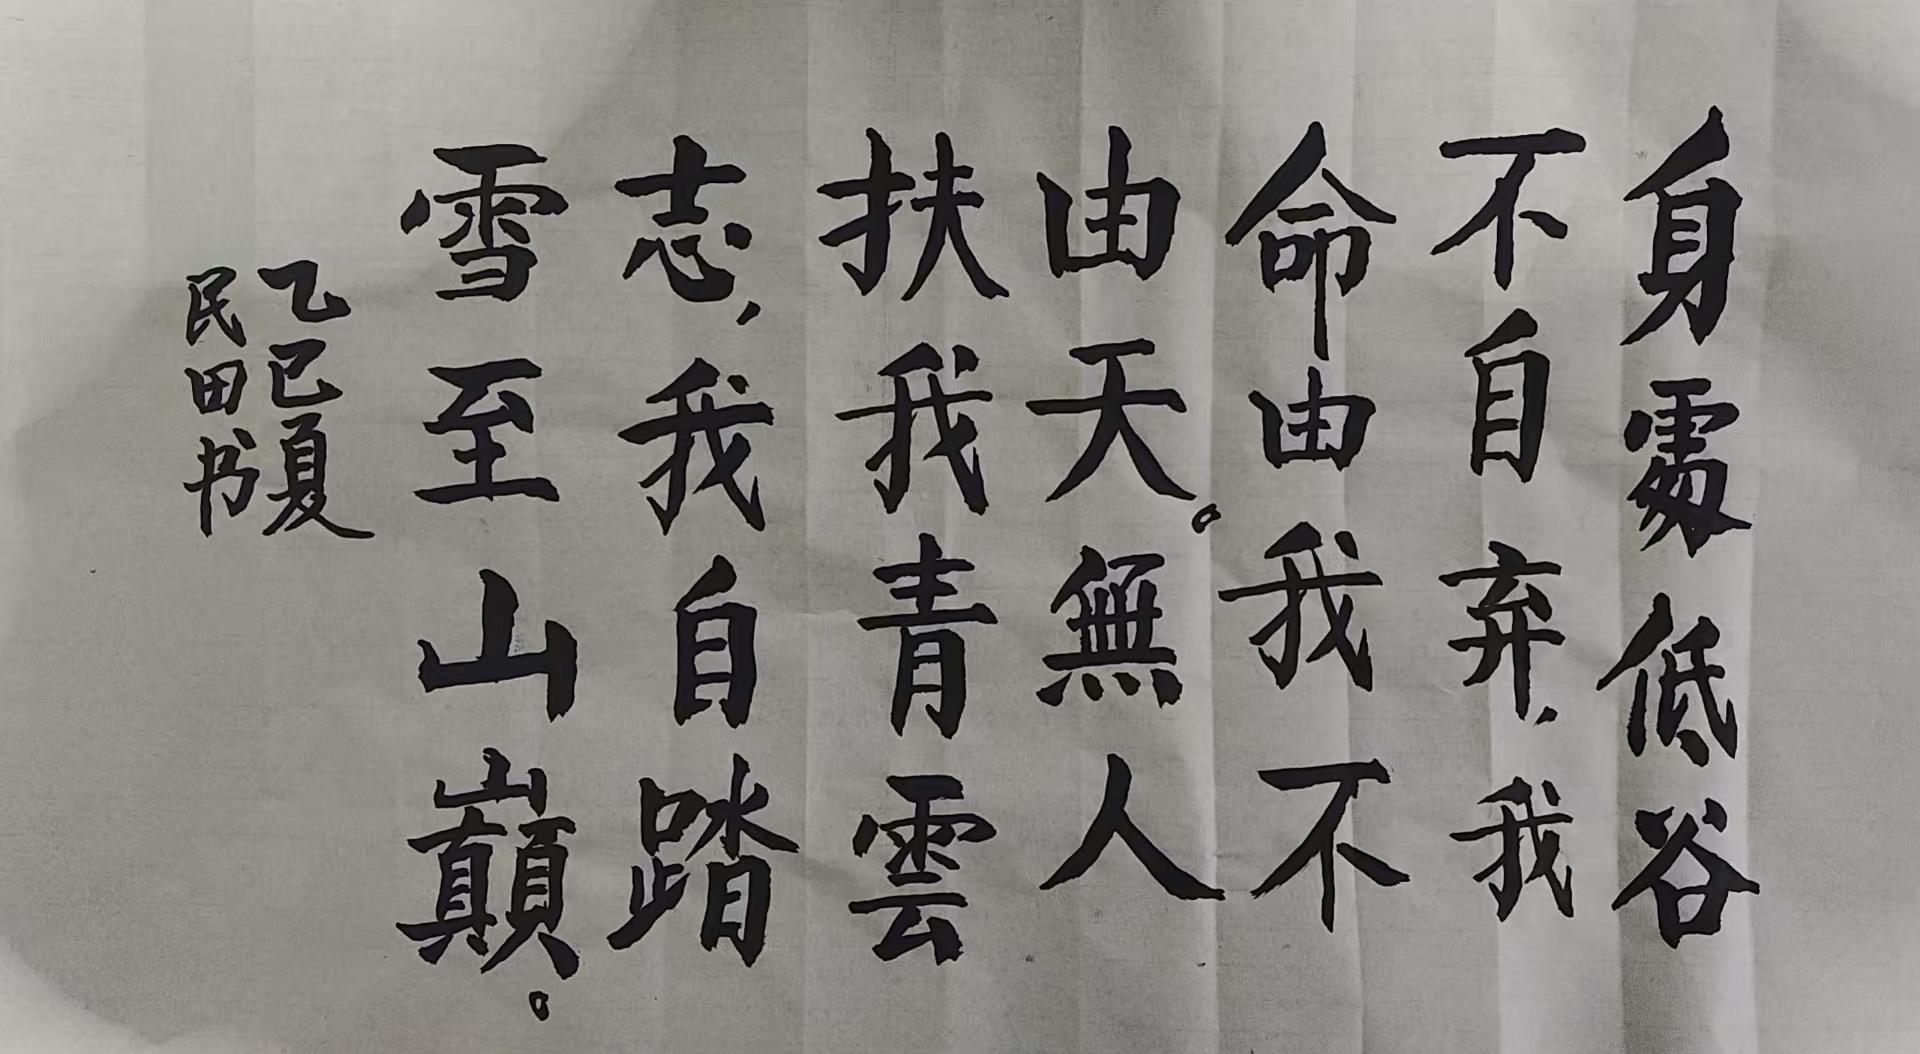 身處低谷
不自弃，我
命由我不
由天。無人
扶我青雲
志，我自踏
雪至山巔。
乙巳夏
民田书